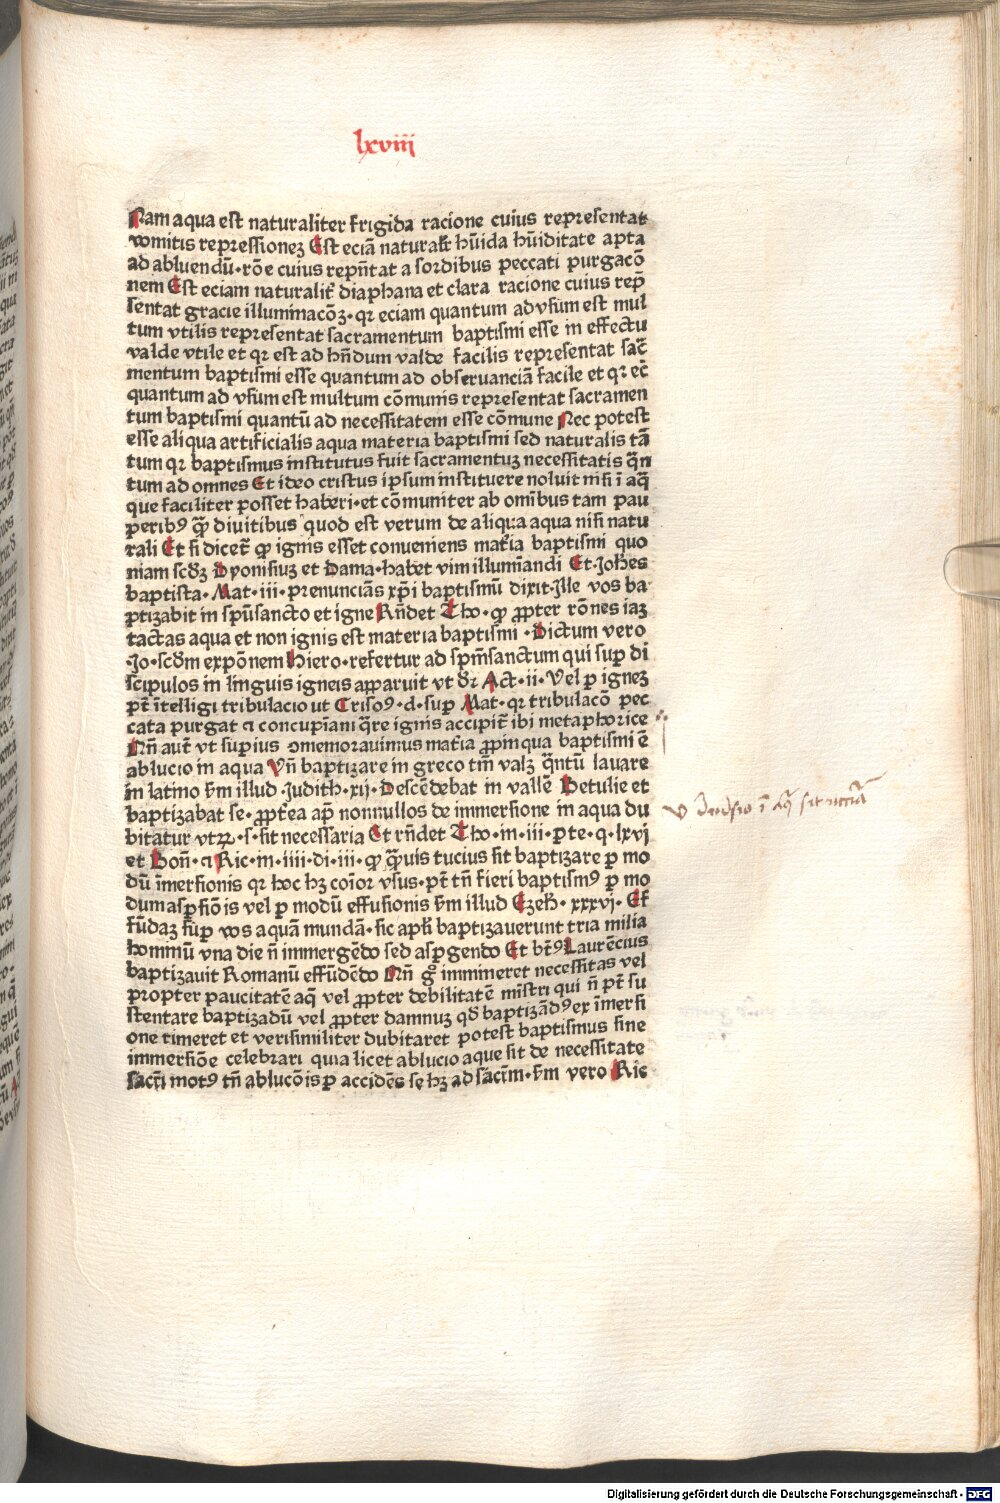 lxviii
Nam aqua est naturaliter frigida racione cuius representat
vomitis repressionez Est eciā naturalr̄ hūida hūiditate apta
ad abluendū·rōe cuius repn̄tat a sordibus peccati purgacō
nem Est eciam naturalit̄ diaphana et clara racione cuius rep̄
sentat gracie illuminacōꝫ·qꝛ eciam quantum ad vsum est mul
tum vtilis representat sacramentum baptismi esse in effectu
valde vtile et qꝛ est ad hn̄dum valde facilis representat sac̄
mentum baptismi esse quantum ad obseruanciā facile et qꝛ ec̄
quantum ad vsum est multum cōmunis representat sacramen
tum baptismi quantū ad necessitatem esse cōmune Nec potest
esse aliqua artificialis aqua materia baptismi sed naturalis tā
tum qꝛ baptismus institutus fuit sacramentuꝫ necessitatis q̄n
tum ad omnes Et ideo cristus ipsum instituere noluit nisi ī aq̄
que faciliter posset haberi·et cōmuniter ab omībus tam pau
peribꝰ qꝫ̄ diuitibus quod est verum de aliqua aqua nisi natu
rali Et si dicet̄ ꝙ ignis esset conueniens mat̄ia baptismi quo
niam scd̄ꝫ Dyonisiuꝫ et Dama·habet vim illumīandi Et·Joh̄es
baptista·Mat·iii·prenuncians xp̄i baptismū dixit·Ille vos ba
ptizabit in spūsancto et igne Rn̄det Tho·ꝙ ꝓpter rōnes iaꝫ
tactas aqua et non ignis est materia baptismi·Dictum vero
·Jo·scd̄m expōnem Hiero·refertur ad spm̄sanctum qui suꝑ di
scipulos in linguis igneis apparuit vt dꝛ Act·ii·Vel ꝑ igneꝫ
pt̄ ītelligi tribulacio ut Crisoꝰ·d·suꝑ Mat·qꝛ tribulacō pec
cata purgat ⁊ concupīani q̄re ignis accipit̄ ibi metaphorice
Nn̄ aut̄ vt superius ꝯmemorauimus mat̄ia ꝓpinqua baptismi ē
ablucio in aqua Vn̄ baptizare in greco tm̄ valꝫ q̄ntū lauare
in latino s̄m illud Judith·xij·Descēdebat in vallē Betulie et
baptizabat se·ꝓpt̄ea ap̄ nonnullos de immersione in aqua du
bitatur vtꝝ·s·sit necessaria Et rn̄det Tho·in·iii·ꝑte·q·lxvj
et Bon̄·⁊ Ric·in·iiii·di·iii·ꝙ qꝫ̄uis tucius sit baptizare ꝑ mo
dū īmersionis qꝛ hoc hꝫ cōior vsus·pt̄ tn̄ fieri baptismꝰ ꝑ mo
dum asꝑsiōis vel ꝑ modū effusionis s̄m illud Ezeh̄·xxxvj·Ef
fūdaꝫ suꝑ vos aquā mundā·sic apl̄i baptizauerunt tria milia
hominū vna die n̄ immergēdo sed asꝑgendo Et bt̄ꝰ Laurēcius
baptizauit Romanū effūdēdo Nn̄ gͦ immineret necessitas vel
propter paucitatē aq̄ vel ꝓpter debilitatē mīstri qui n̄ pt̄ su
stentare baptizādū vel ꝓpter damnuꝫ qd̄ baptizādꝰ ex īmersi
one timeret et verisimiliter dubitaret potest baptismus sine
immersiōe celebrari quia licet ablucio aque sit de necessitate
sacr̄i motꝰ tn̄ ablucōis ꝑ accidēs se hꝫ ad sacr̄m·s̄m vero Ric
Digitalisierung gefördert durch die Deutsche Forschungsgemeinschaft - DFG